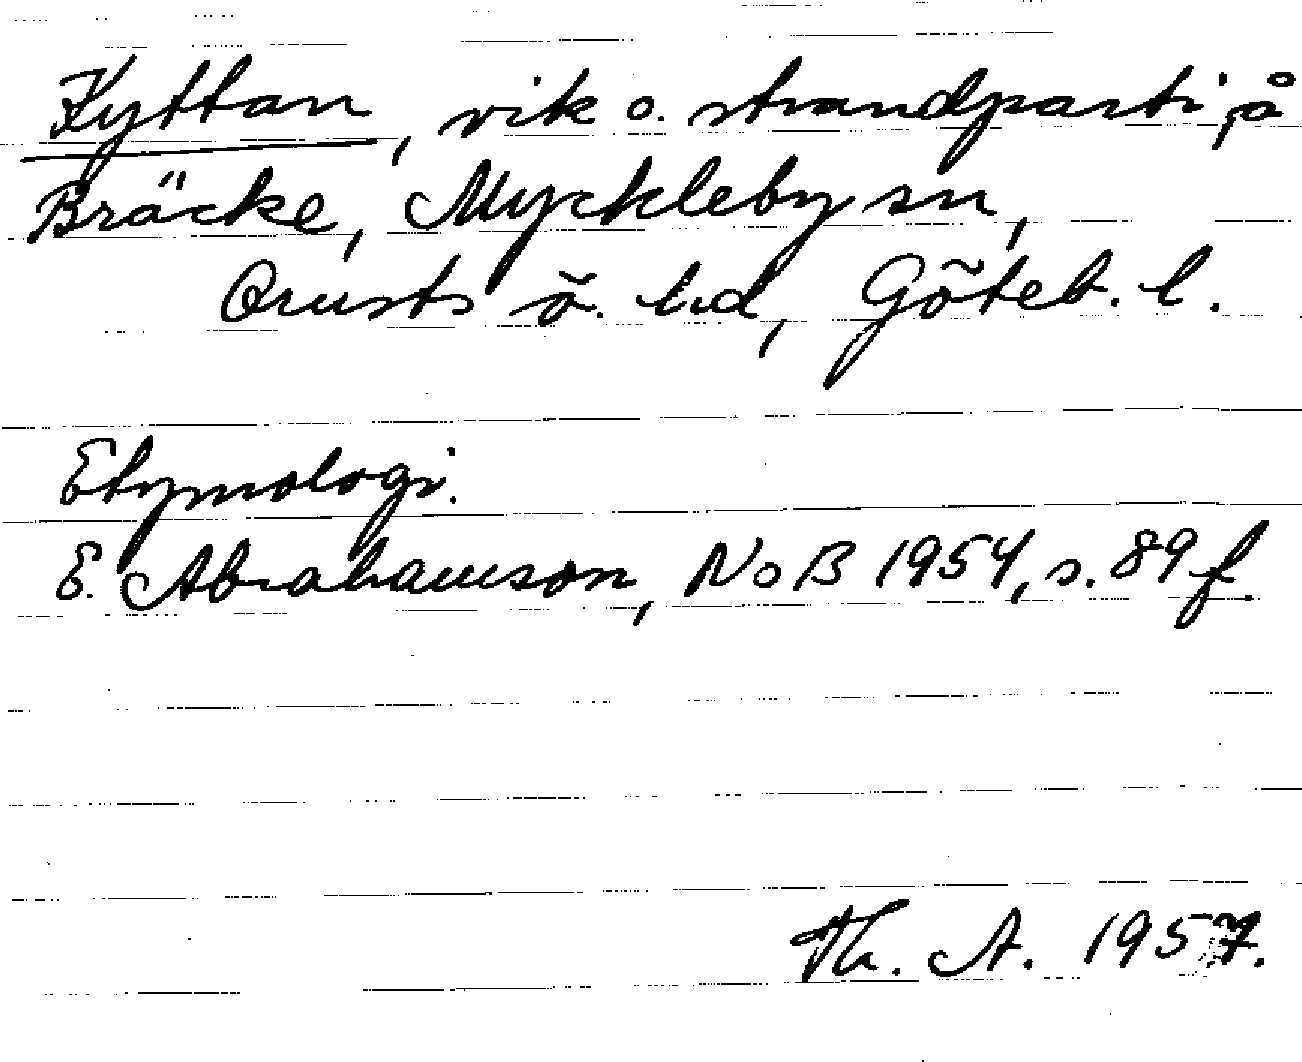 Kyttan, vik o. strandparti på
Bräcke, Myckleby sn,
Orusts ö. hd, Göteb. l.
Etymologi.
E. Abrahamson, NoB 1954, s. 89 f.
Th. A. 1957.